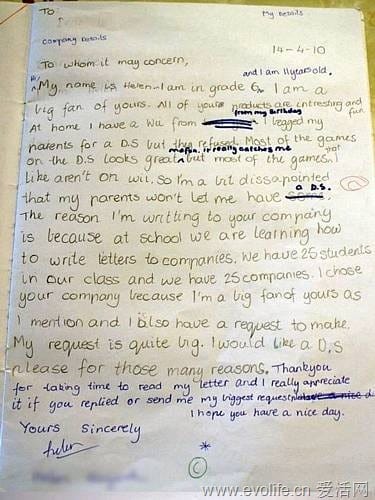 To:
My Details
Company Details
14-4-10
To whom it may concern,
and I am 11 years old.
Hi,
My name is Helen. I am in grade 6. I am a
big fan of yours. All of your products are intresting and fun.
from my birthday
At home I have a Wii from I begged my
parents for a DS but they refused. Most of the games
it really catches me
on the DS looks great but most of the games that
like aren't on wii. So I'm a bit dissapointed
a D.S.
that my parents won't let me have
The reason I'm writting to your company
is because at school we are learning how
to write letters to companies. We have 25 students
in our class and we have 25 companies. I chose
your company because I'm a big fan of yours as
I mention and I also have a request to make.
My request is quite big. I would like a D.S
please for those many reasons. Thankyou
for taking time to read my letter and I really appreciate
it if you replied or send me my biggest request. have a nice d
I hope you have a nice day.
Yours Sincerely
Helen
*
C
www.evolife.cn 爱活网